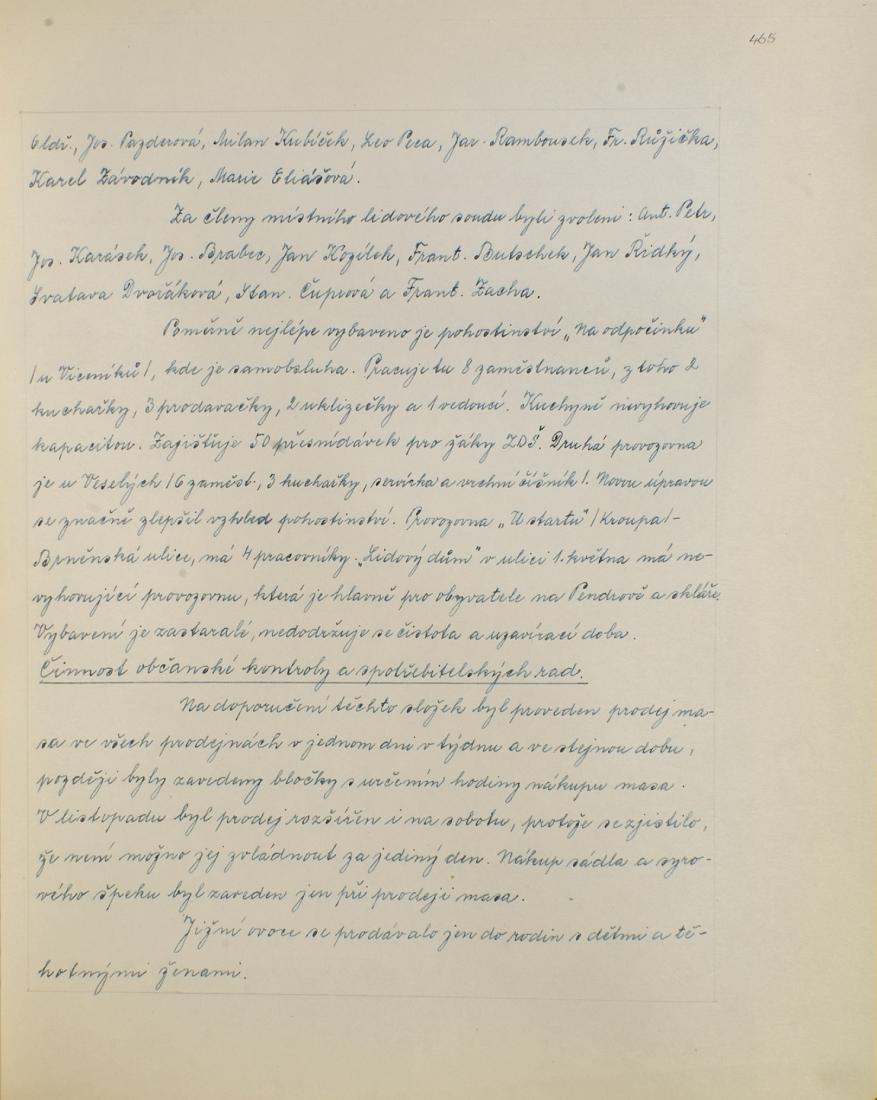 465
Oldř., Jos. Pazderová, Milan Kubíček, Leo Peca, Jar. Rambousek, Fr. Růžička,
Karel Závodník, Marie Eliášová.
Za členy místního lidového soudu byli zvoleni: Ant. Petr,
Jos. Karásek, Jos. Brabec, Jan Kozílek, Frant. Butschek, Jan Řidký,
Svatava Dvořáková, Stan. Čuprová a Frant. Zacha.
Poměrně nejlépe vybaveno je pohostinství „Na odpočinku"
/u Viceníků/, kde je samobsluha. Pracuje tu 8 zaměstnanců, z toho 2
kuchařky, 3 prodavačky, 2 uklizečky a 1 vedoucí. Kuchyně nevyhovuje
kapacitou. Zajišťuje 50 přesnídávek pro žáky ZDŠ. Druhá provozovna
je u Veselých /6 zaměst., 3 kuchařky, servírka a vrchní číšník/. Novou úpravou
se značně zlepšil vzhled pohostinství. Provozovna „U startu" /Kroupa/-
Brněnská ulice, má 4 pracovníky. „Lidový dům" v ulici 1. května má ne-
vyhovující provozovnu, která je hlavně pro obyvatele na Pendrově a skláře.
Vybavení je zastaralé, nedodržuje se čistota a uzavírací doba.
Činnost občanské kontroly a spotřebitelských rad.
Na doporučení těchto složek byl proveden prodej ma-
sa ve všech prodejnách v jednom dni v týdnu a ve stejnou dobu,
později byly zavedeny bločky s určením hodiny nákupu masa.
V listopadu byl prodej rozšířen i na sobotu, protože se zjistilo,
že není možno jej zvládnout za jediný den. Nákup sádla a syro-
vého špeku byl zaveden jen při prodeji masa.
Jižní ovoce se prodávalo jen do rodin s dětmi a tě-
hotnými ženami.